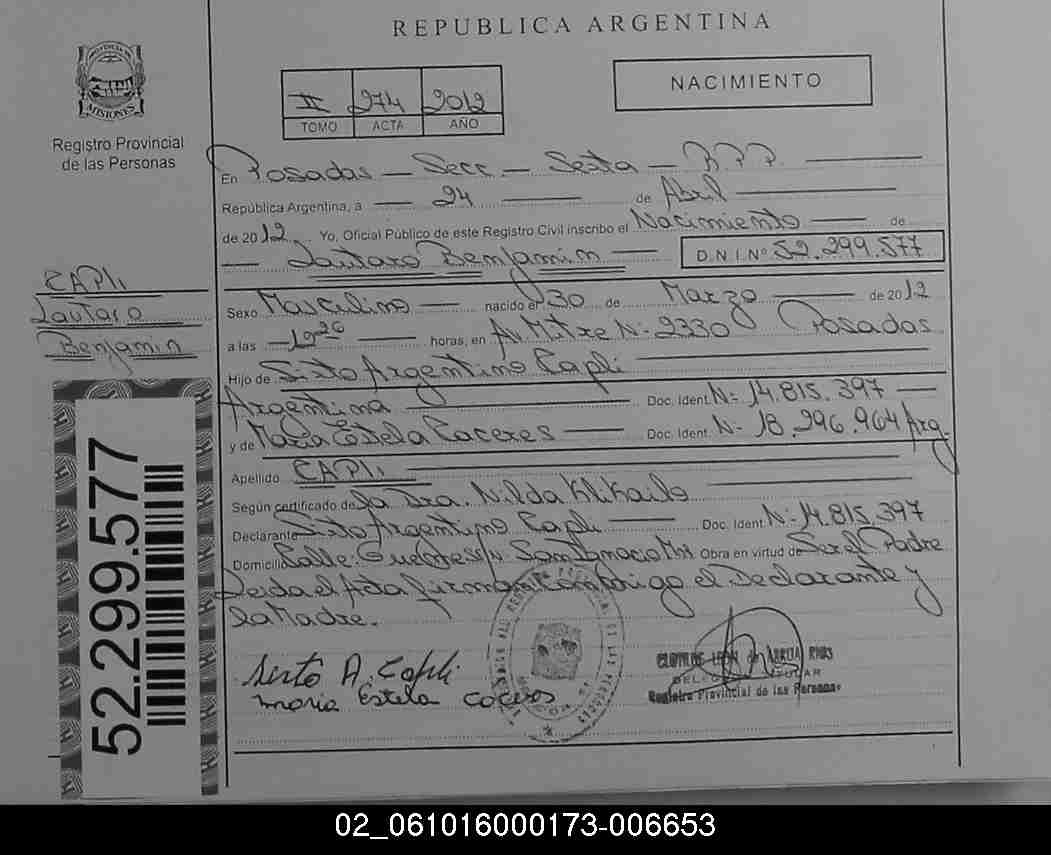 REPUBLICA ARGENTINA
PROVINCIA DE
MISIONES
Registro Provincial
de las Personas
II 274 2012
TOMO ACTA AÑO
NACIMIENTO
En Posadas - Secc - Sexta - R.P.P.
República Argentina, a 24 de Abril
de 2012 Yo, Oficial Público de este Registro Civil inscribo el Nacimiento de
Lautaro Benjamin D.N.I. Nº 52.299.577
CAPLI
Lautaro
Benjamin
Sexo Masculino nacido el 30 de Marzo de 2012
a las 19:20 horas, en Av Mitre Nº 2330 Posadas
Hijo de Sixto Argentino Capli
Argentina Doc. Ident. Nº 14.815.397
y de Maria Estela Caceres Doc. Ident. Nº 18.296.964 Arg.
Apellido CAPLI
Según certificado de la Dra. Nilda
Declarante Sixto Argentino Capli Doc. Ident. Nº 14.815.397
Domicilio Calle: Guemes s/n San Ignacio Mns Obra en virtud de Ser el Padre
Leida el Acta firman conmigo el Declarante y
la Madre.
52.299.577
Sixto A. Capli
Maria Estela Caceres
TITULAR
Registro Provincial de las Personas
02_061016000173-006653